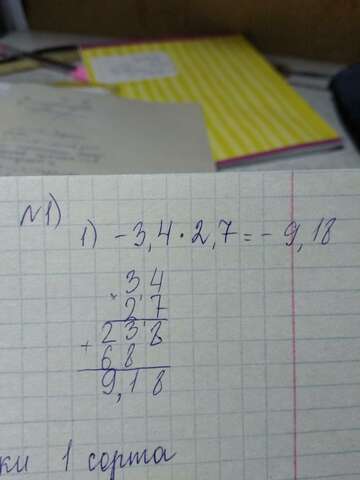 №1)
1) -3,4 · 2,7 = - 9,18
× 3 4
2 7
+ 2 3 8
6 8
9,1 8
ки 1 сорта